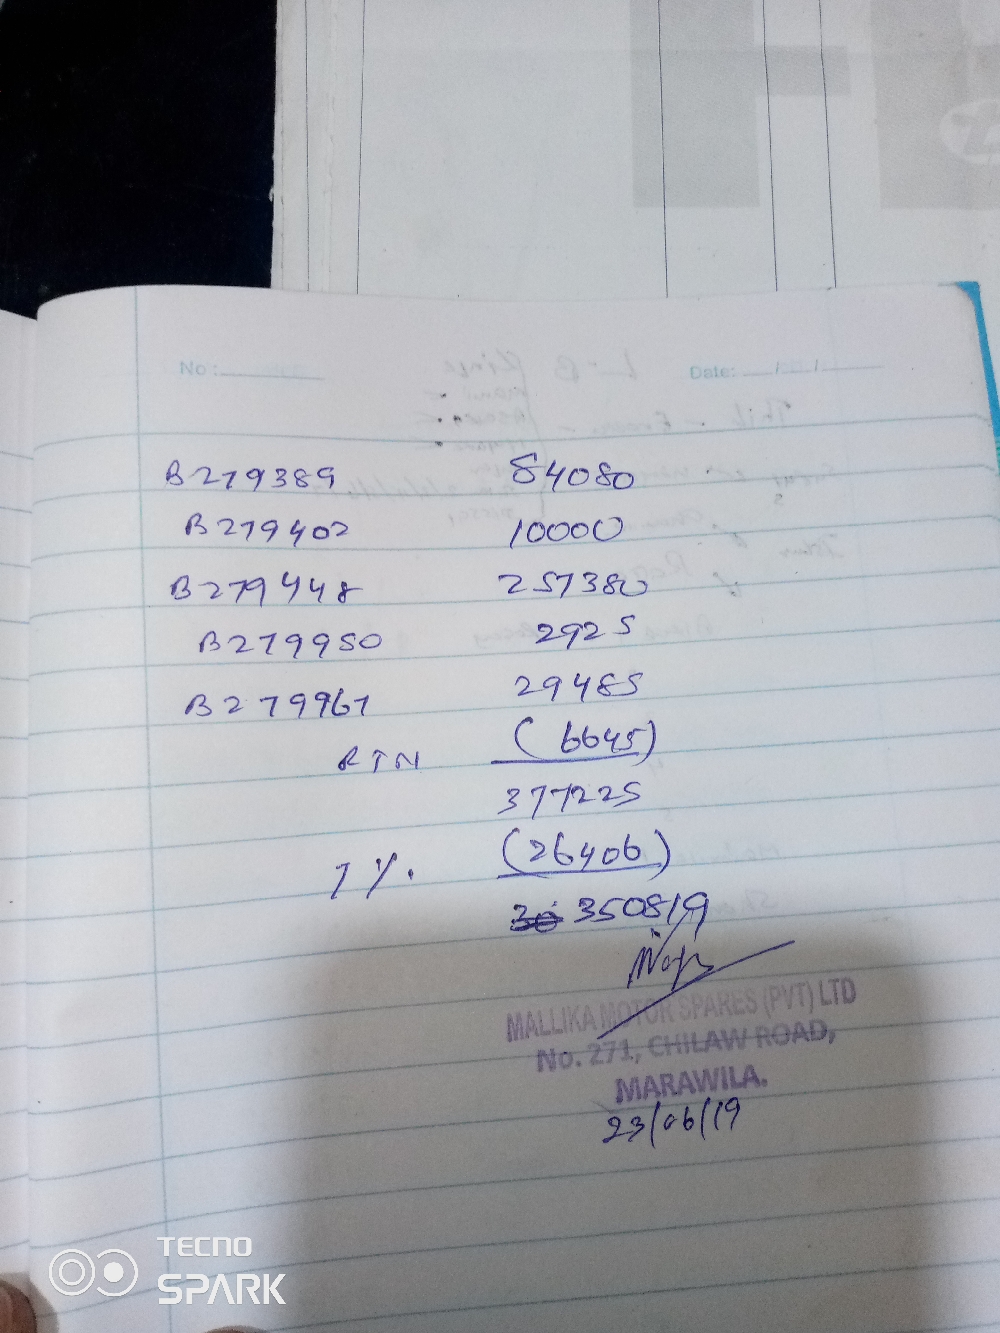 No : Date: / /
B279389 84080
B279402 10000
B279448 257380
B279950 2925
B279967 29485
RTN (6645)
377225
7%. (26406)
350819
MALLIKA MOTOR SPARES (PVT) LTD
No. 271, CHILAW ROAD,
MARAWILA.
23/06/19
TECNO
SPARK